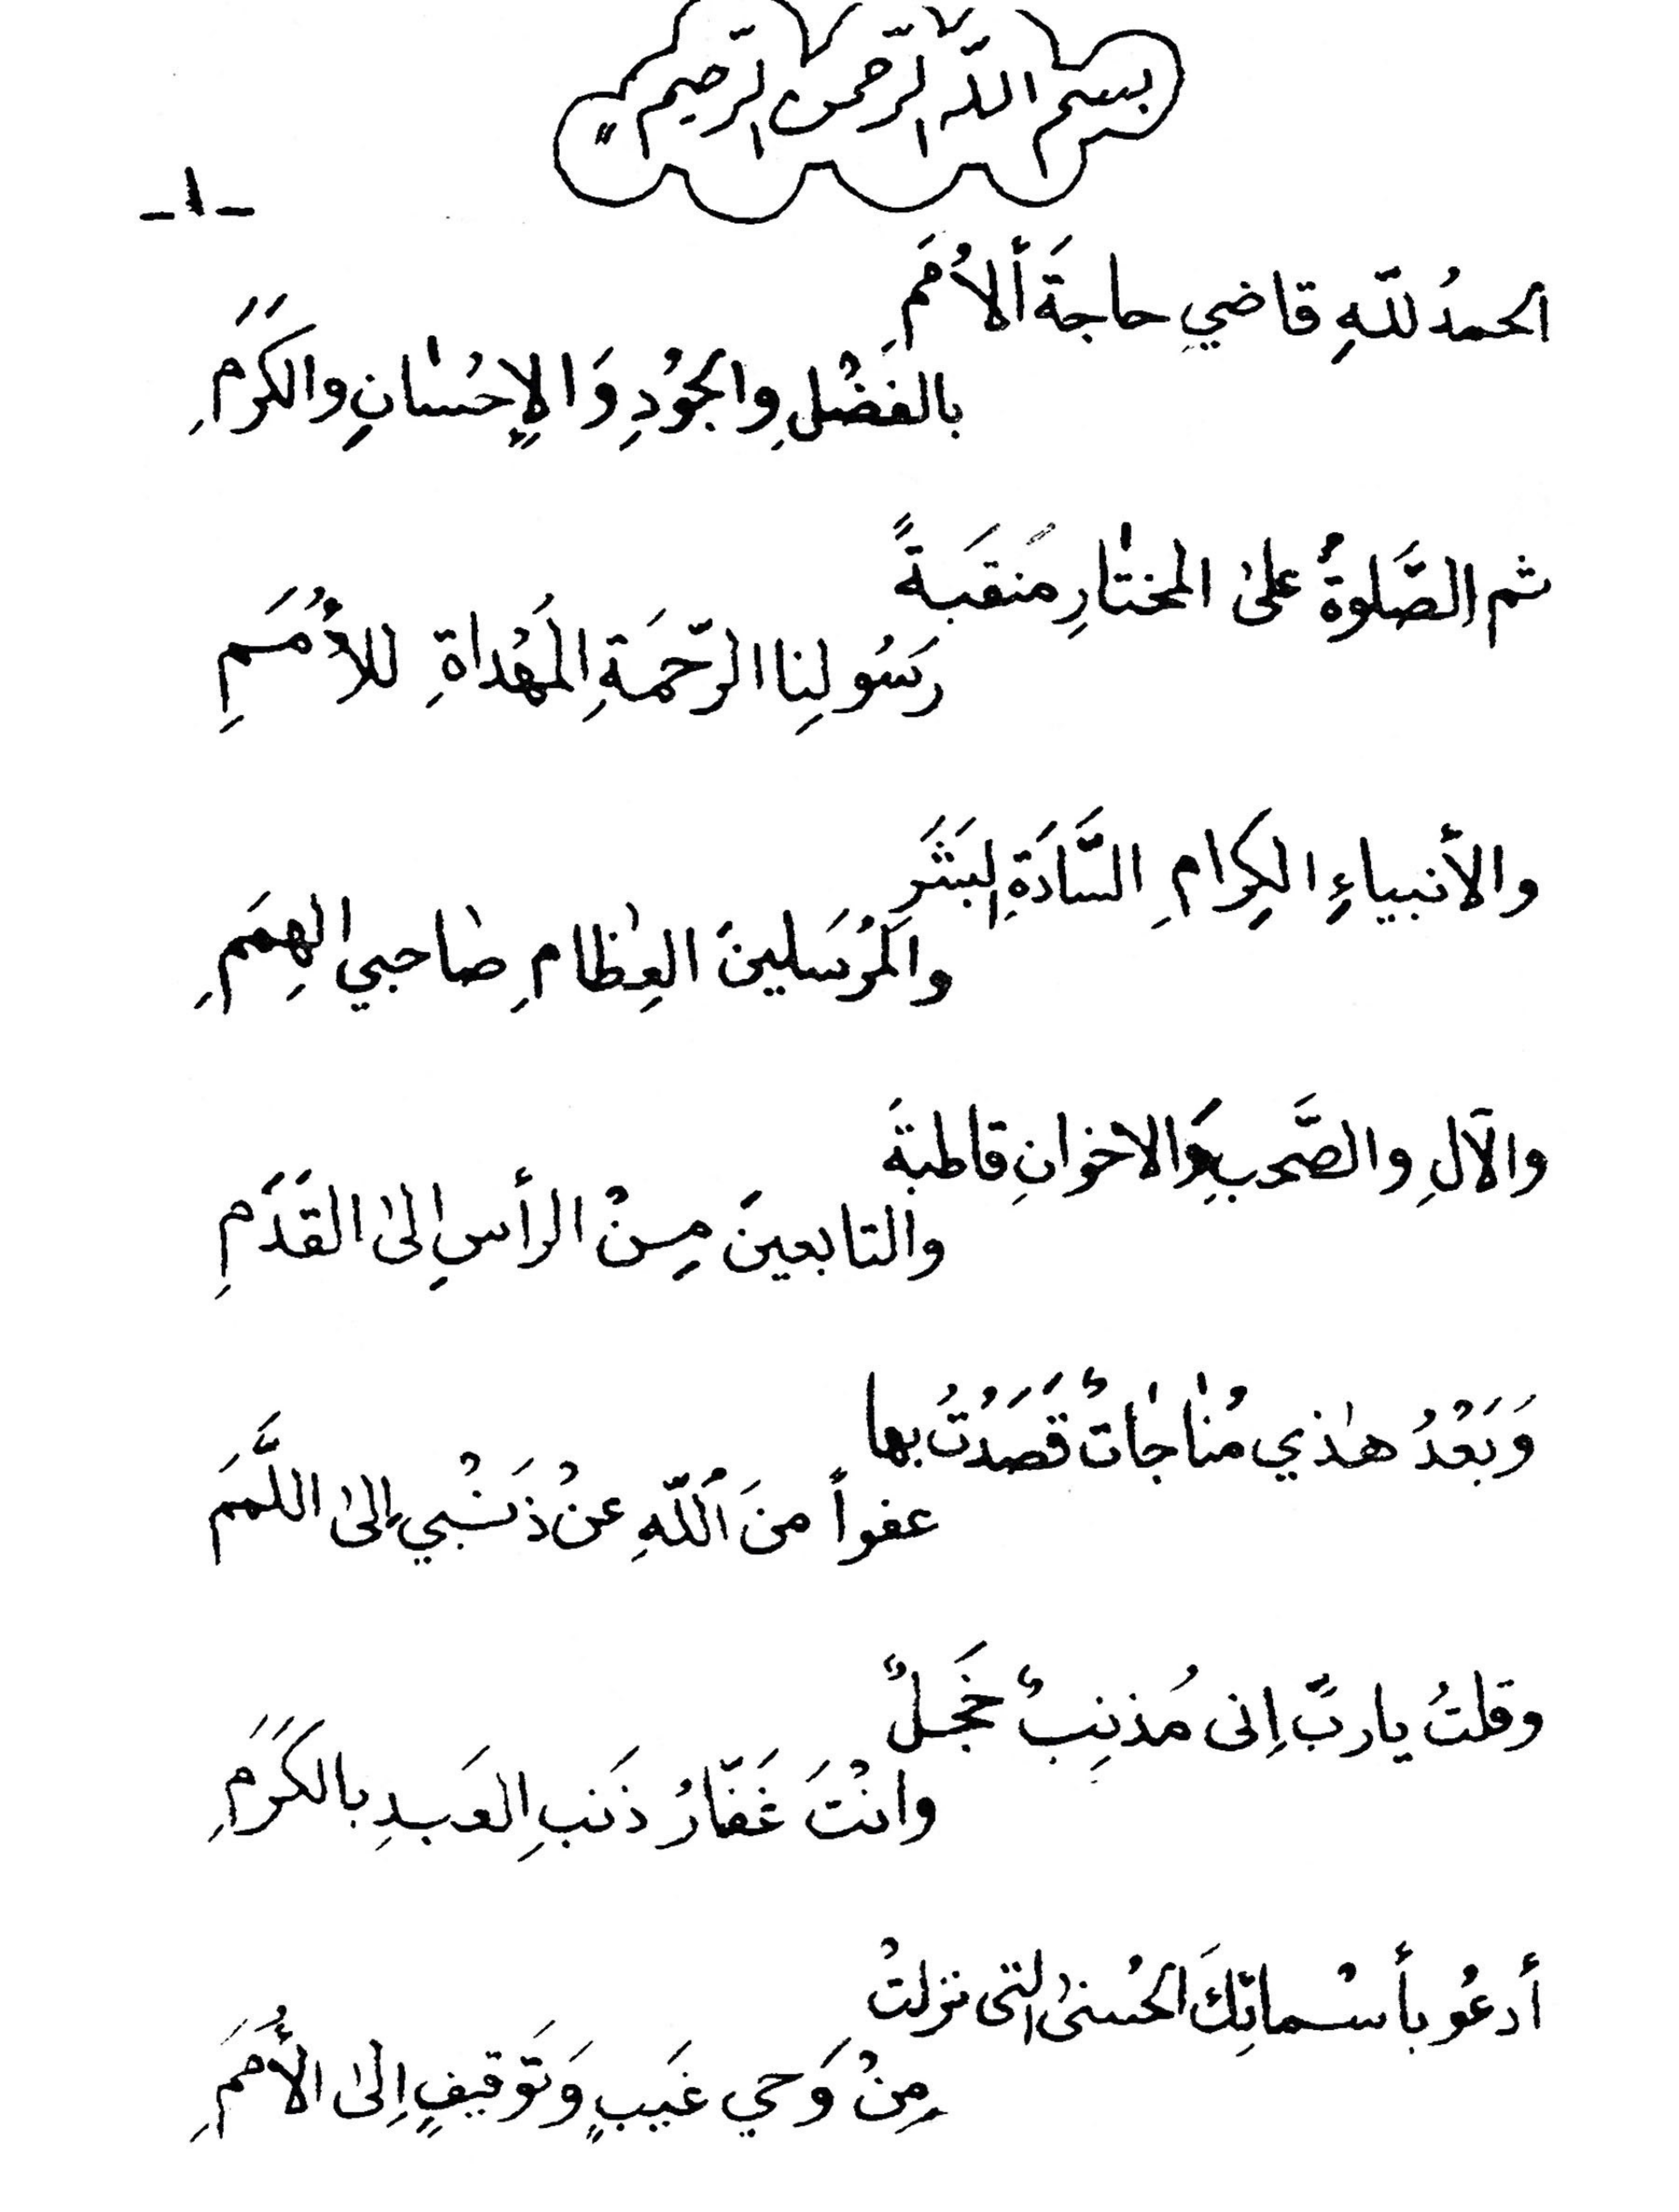 بسم اللّه الرّحمن الرّحيم
-١-
الحمدُ للّهِ قاضي حاجةَ ألاُمَمِ
بالفَضْلِ والجُودِ وَالإحْسٰانِ والكَرَمِ
ثم الصَّلوةُ علىٰ المختٰارِ مَنقَبَةً
رَسُولِنا الرّحمَةِ المُهْداةِ للأُمَمِ
والأنبياءِ الكِرامِ السَّادَةِ البَشَر
والمُرْسَلينَ العِظٰامِ صٰاحبي الهِمَمِ
والآلِ والصَّحبِ وَالاخوانِ قاطبةَ
والتابعينَ مِنْ الرأسِ إلىٰ القَدَمِ
وَبَعْدُ هٰذي مُنٰاجٰاتٌ قَصَدْتُ بها
عفواً منَ اُللّهِ عنْ ذَنْبي إلىٰ اللَّمَم
وقلتُ ياربَّ اِنى مُذنِبٌ خَجَلٌ
وانْتَ غَفّارُ ذَنبِ العَبدِ بالكَرَمِ
أدعُو بأسْمائِكَ الحُسنىٰ التى نزلتْ
مِنْ وَحيِ غَيبٍ وَتَوقيفٍ اِلىٰ الأُمَمِ